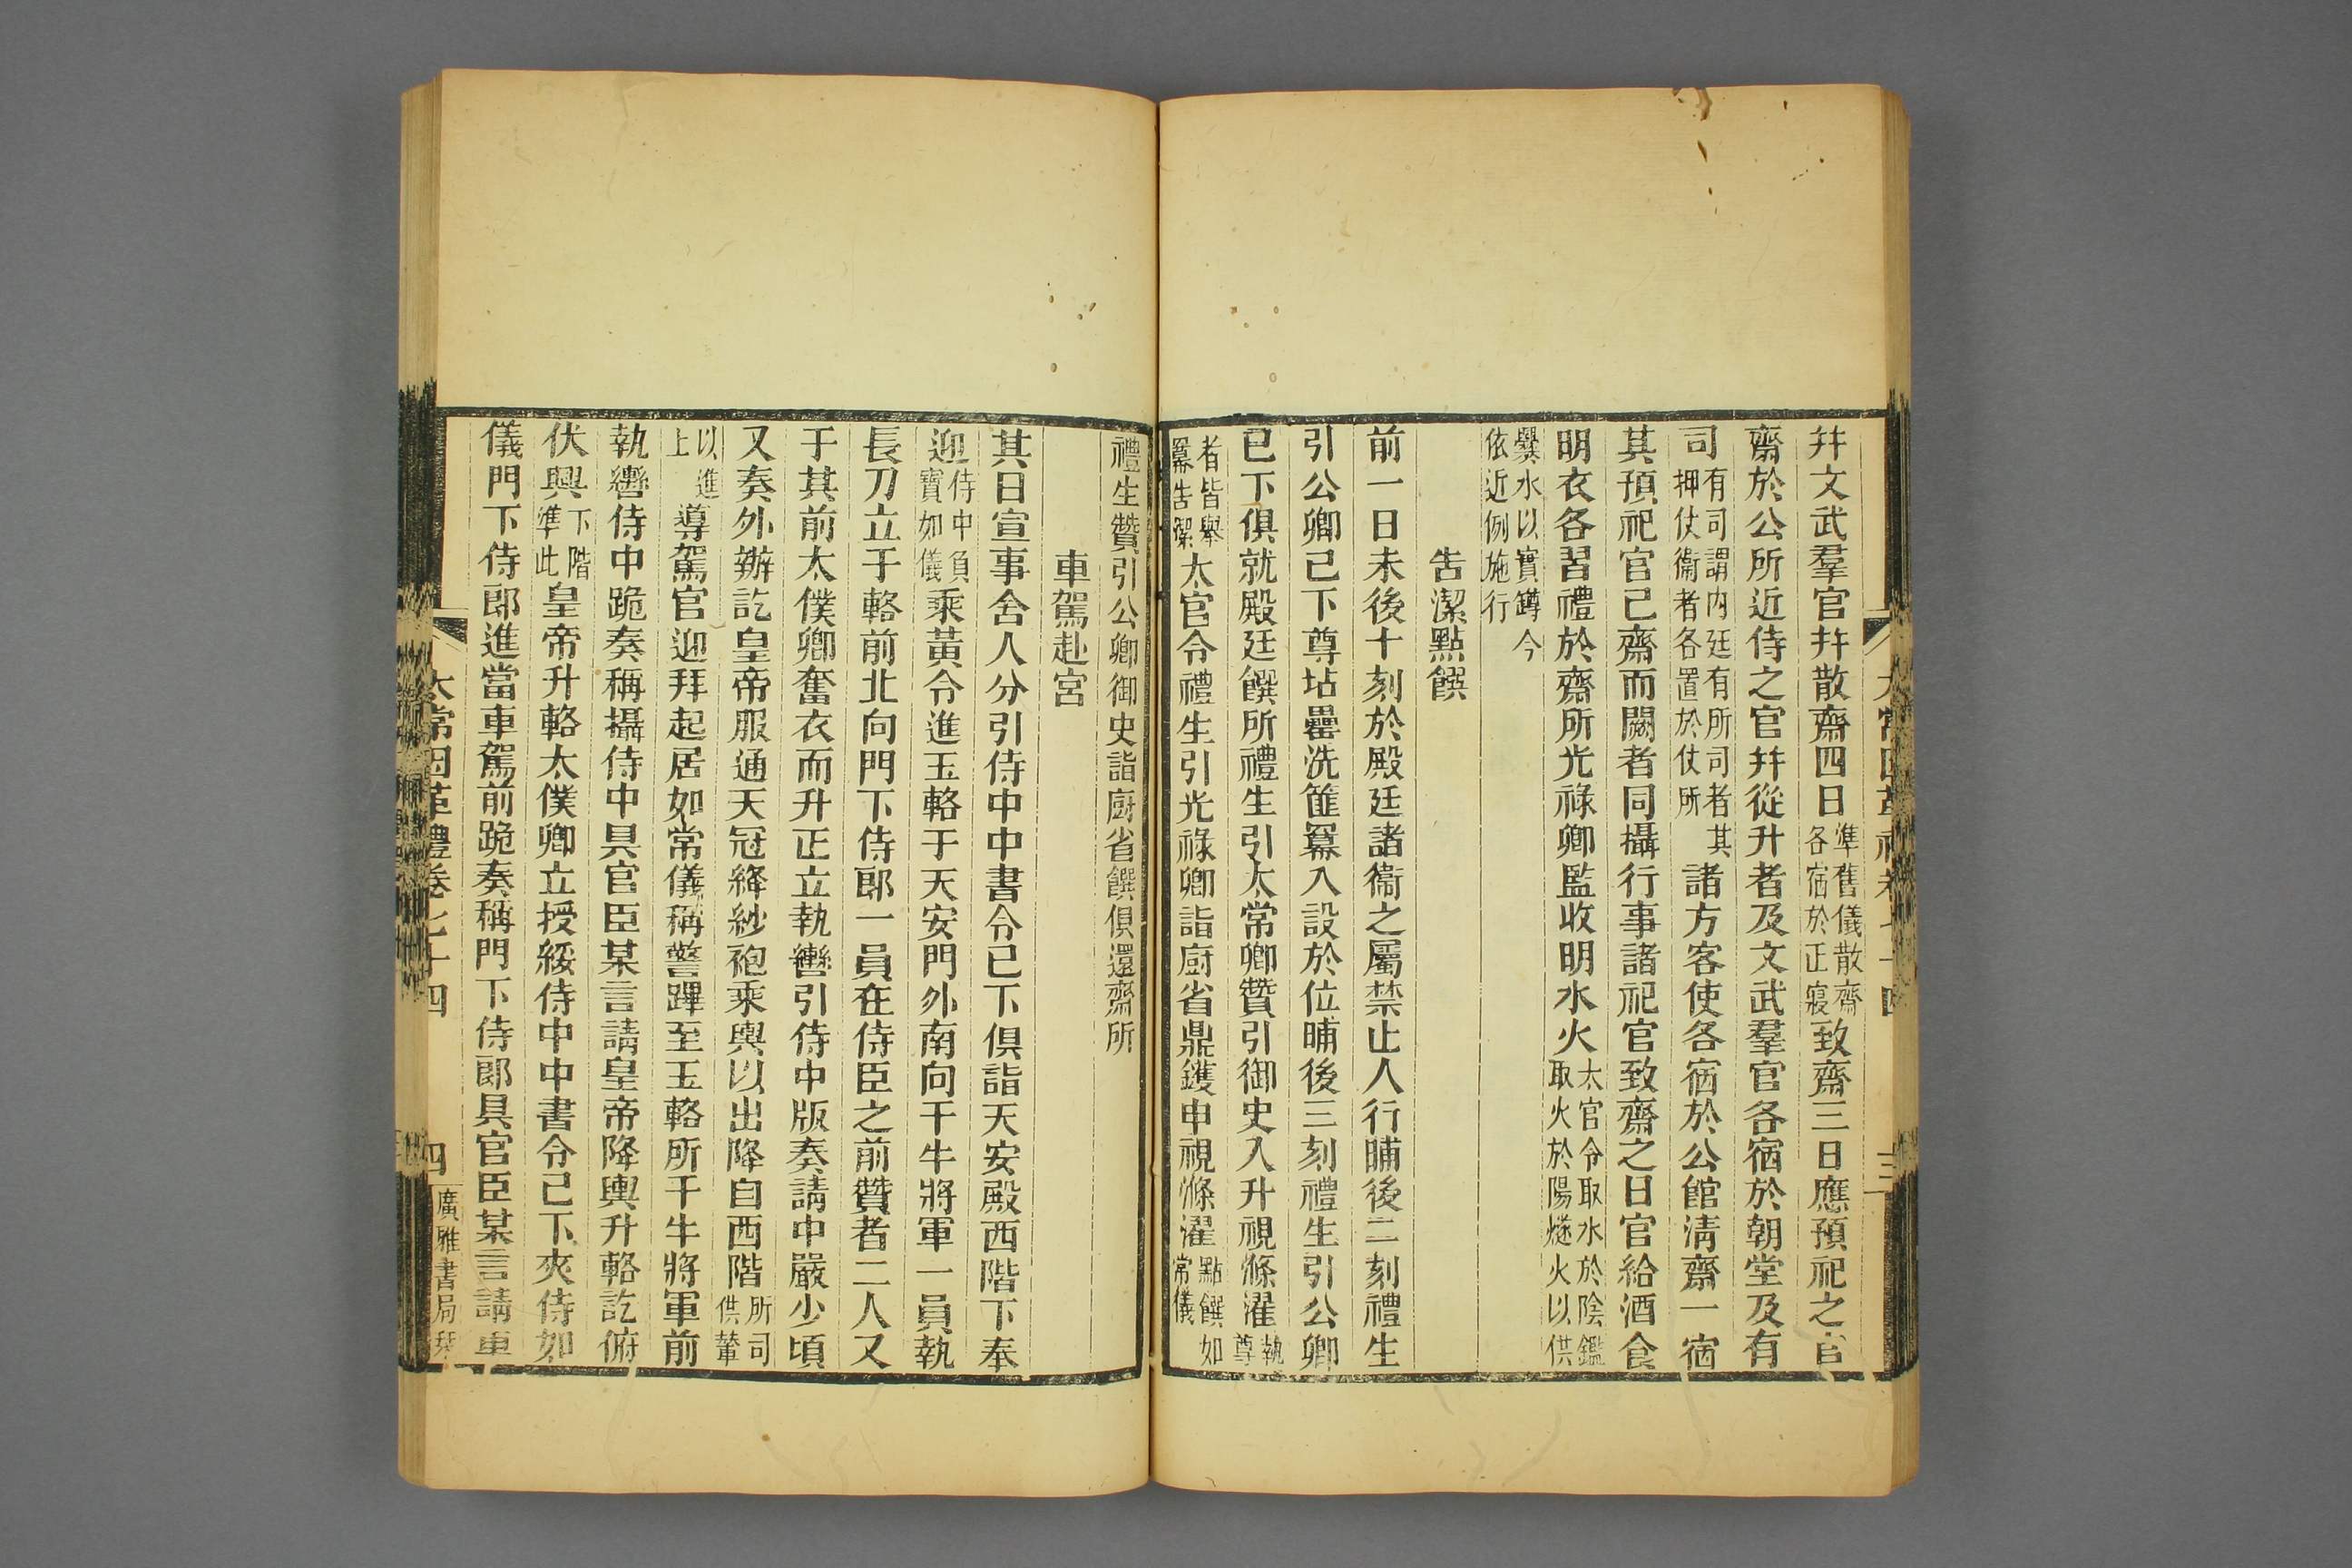 幷文武羣官幷散齋四日準舊儀散齋各宿於正寢致齋三日應預祀之官
齋於公所近侍之官幷從升者及文武羣官各宿於朝堂及有
司有司謂内廷有所司者其押仗衞者各置於仗所諸方客使各宿於公館淸齋一宿
其預祀官已齋而闕者同攝行事諸祀官致齋之日官給酒食
明衣各習禮於齋所光祿卿監收明水火太官令取水於陰鑑取火於陽燧火以供
爨水以實罇今依近例施行
告潔點饌
前一日未後十刻於殿廷諸衞之屬禁止人行晡後二刻禮生
引公卿已下尊坫罍洗篚冪入設於位晡後三刻禮生引公卿
已下俱就殿廷饌所禮生引太常卿贊引御史入升視滌濯執尊
者皆舉冪告潔太官令禮生引光祿卿詣廚省鼎鑊申視滌濯點饌如常儀
禮生贊引公卿御史詣廚省饌俱還齋所
車駕赴宮
其日宣事舍人分引侍中中書令已下俱詣天安殿西階下奉
迎侍中負寶如儀乘黃令進玉輅于天安門外南向千牛將軍一員執
長刀立于輅前北向門下侍郎一員在侍臣之前贊者二人又
于其前太僕卿奮衣而升正立執轡引侍中版奏請中嚴少頃
又奏外辦訖皇帝服通天冠絳紗袍乘輿以出降自西階所司供輦
以進上導駕官迎拜起居如常儀稱警蹕至玉輅所千牛將軍前
執轡侍中跪奏稱攝侍中具官臣某言請皇帝降輿升輅訖俯
伏興下階準此皇帝升輅太僕卿立授綏侍中中書令已下夾侍如
儀門下侍郎進當車駕前跪奏稱門下侍郎具官臣某言請車
太常因革禮卷七十四
四
廣雅書局栞